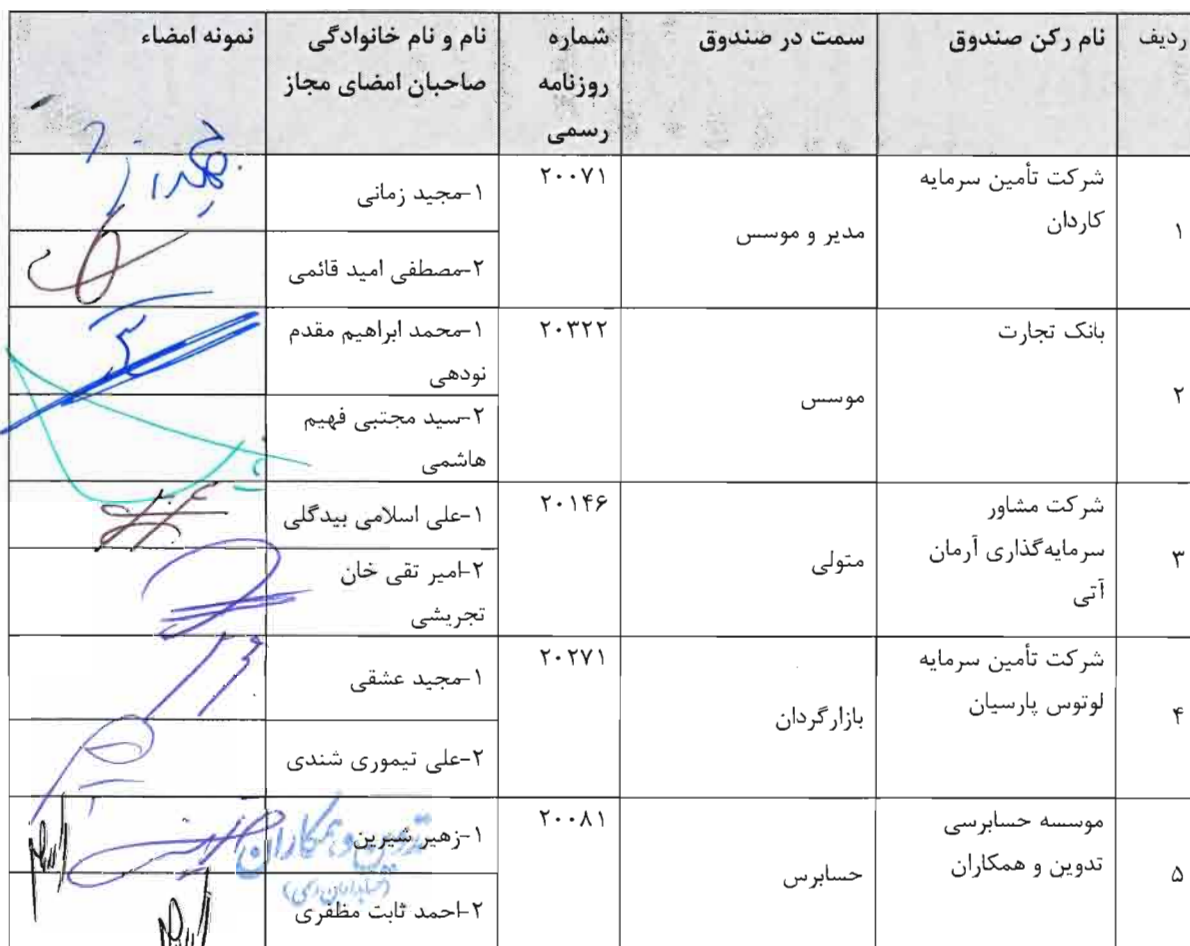 ردیف
نام رکن صندوق
سمت در صندوق
شماره
روزنامه
رسمی
نام و نام خانوادگی
صاحبان امضای مجاز
نمونه امضاء
۱
شرکت تأمین سرمایه
کاردان
مدیر و موسس
۲۰۰۷۱
۱-مجید زمانی
۲-مصطفی امید قائمی
۲
بانک تجارت
موسس
۲۰۳۲۲
۱-محمد ابراهیم مقدم
نودهی
۲-سید مجتبی فهیم
هاشمی
۳
شرکت مشاور
سرمایه‌گذاری آرمان
آتی
متولی
۲۰۱۴۶
۱-علی اسلامی بیدگلی
۲-امیر تقی خان
تجریشی
۴
شرکت تأمین سرمایه
لوتوس پارسیان
بازارگردان
۲۰۲۷۱
۱-مجید عشقی
۲-علی تیموری شندی
۵
موسسه حسابرسی
تدوین و همکاران
حسابرس
۲۰۰۸۱
۱-زهیر شیرین
۲-احمد ثابت مظفری
تدوین و همکاران
(حسابداران رسمی)